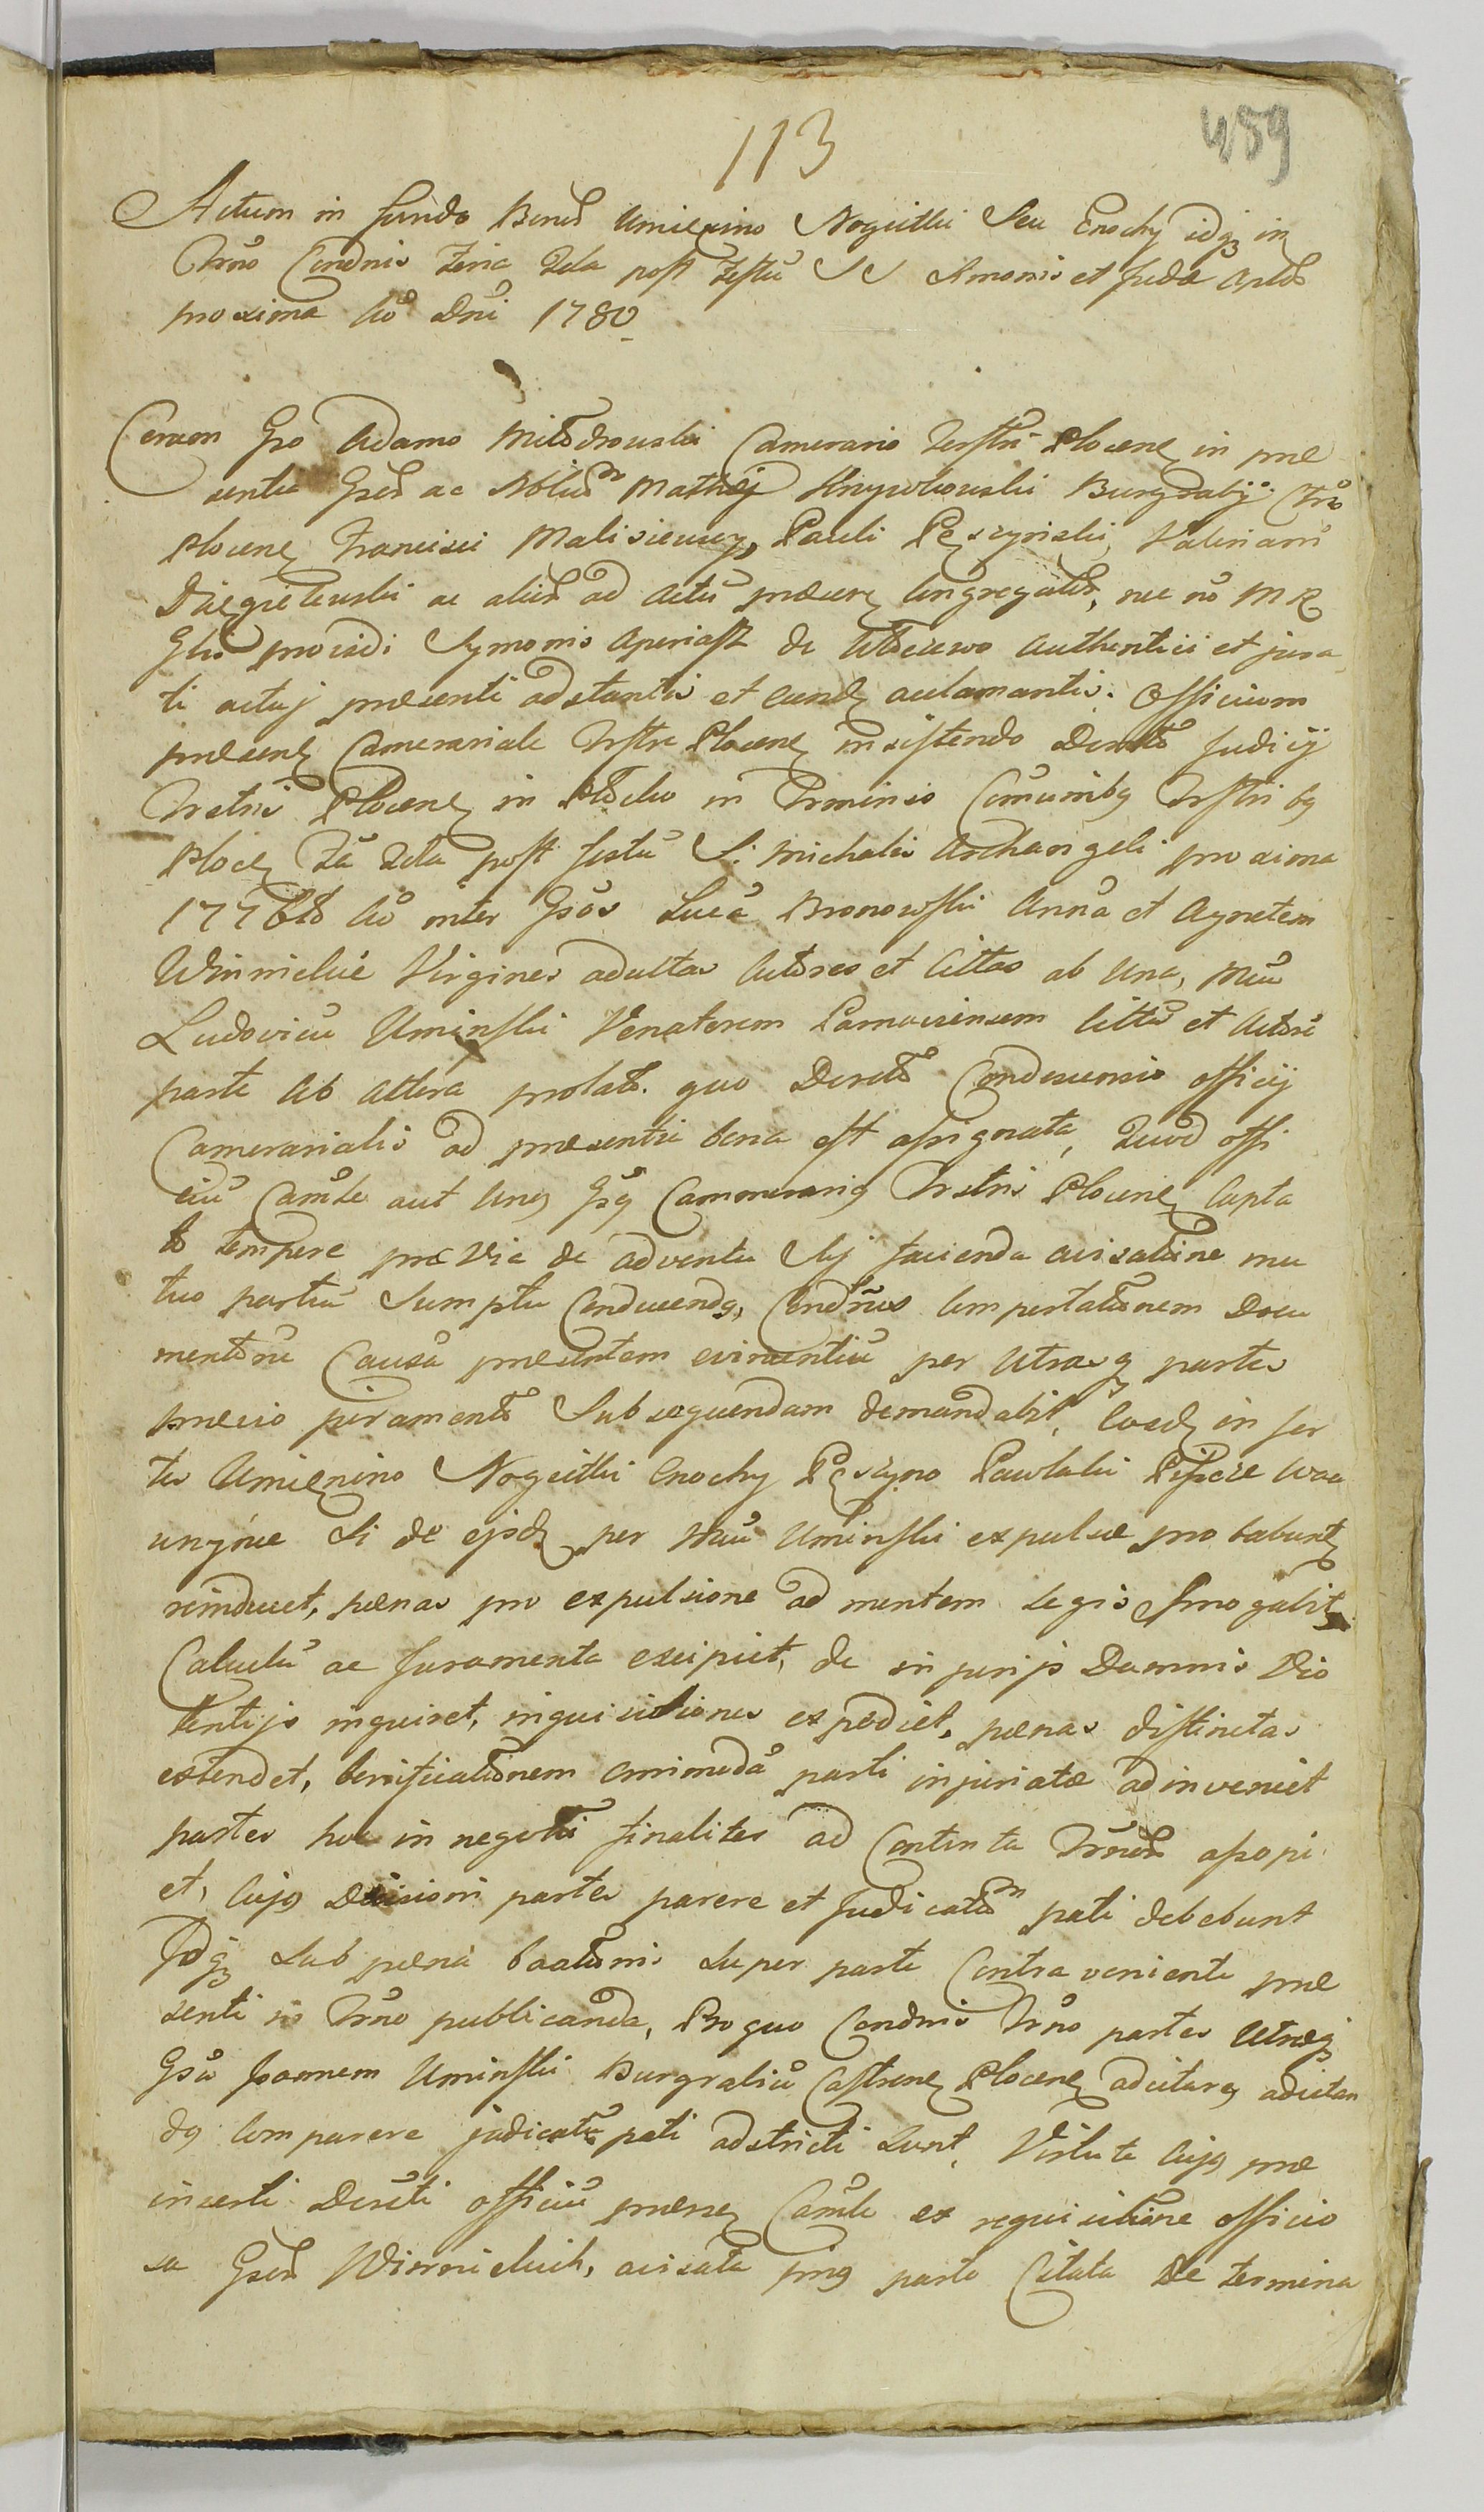 113
459
Actum in fundo Bonor Umienino Nogietki Seu Enochy idq in
Trno Condnis feria 2da post festu SS Simonis et Judæ Aplor
proxima Ao Dni 1780
Coram Gso Adamo Miłodrowski Camerario Trstri Plocen in præ
sentia Gsor ac Nblium Mathej Krzywkowski Burgrabij Cstr
Plocen Francisci Malisiewicz, Pauli Pęszynski, Valeriani
Dzięgielewski ac alior ad actu præsen Congregator, nec no M R
Glis providi Symonis Aperiast de Włoczewo authentici et jura
ti actuj præsenti adstantis et eund aclamantis. Officium
præsens Camerariale Trstre Plocen insistendo Decreto Judicij
Trstris Plocen in Płocko in Terminis Comunibq Trstribq
Plocen fa 2da post festu S. Michaelis Archangeli proxima
1776to Ao inter Gsos Luca Bronowski Anna et Agnetem
Winnickie Virgines adultas Actores et Cittas ab Una, Mcu
Ludovicu Uminski Venatorem Parnaviensem Cittu et Actore
parte Ab altera prolato. quo Decreto Condescensio officij
Camerarialis ad præsentia bona est assignata, Quod offi
ciu Camrle aut Unq Gsq Cammerariq Trstris Plocen Capta
to tempore prævia de adventu Sui facienda avisatione mu
tuo partiu Sumptu Conducendq, Condnus Comportationem Docu
mentoru Causa præsentem evincentiu per Utrasq partes
prævio juramento Subsequendam demandabit, easd in sor
tes Umienino Nogietki Enochy Pęszyno Pawłaki Pisscze waa
unynie Si de ejsd per Mcu Uminski expulsæ probabunt
reinducet, pænas pro expulsione ad mentem Legis Irrogabit
Calculu ac Juramenta excipiet, de injurijs Damnis Vio
lentijs inquiret, inquisitiones expediet, pænas distinctas
extendet, bonificationem omnimoda parti injuriatæ adinveniet
partes hoc in negotio finaliter ad Contenta Trnor assopi
et, Cujq Decisioni partes parere et Judicatum pati debebunt
Idq Sub pæna banitionis Super parte Contraveniente præ
senti in Trno publicanda, Pro quo Condnis Trno partes Utræq
Gsu Joannem Uminski Burgrabiu Castrens Plocen adcitare, adcitan
dq Comparere judicatu pati adstricti Sunt. Virtute Cujq præ
inserti Decreti officiu præsens Camrle ex requisitione officio
sa Gsor Winnickich, avisata prius parte Citata de termina